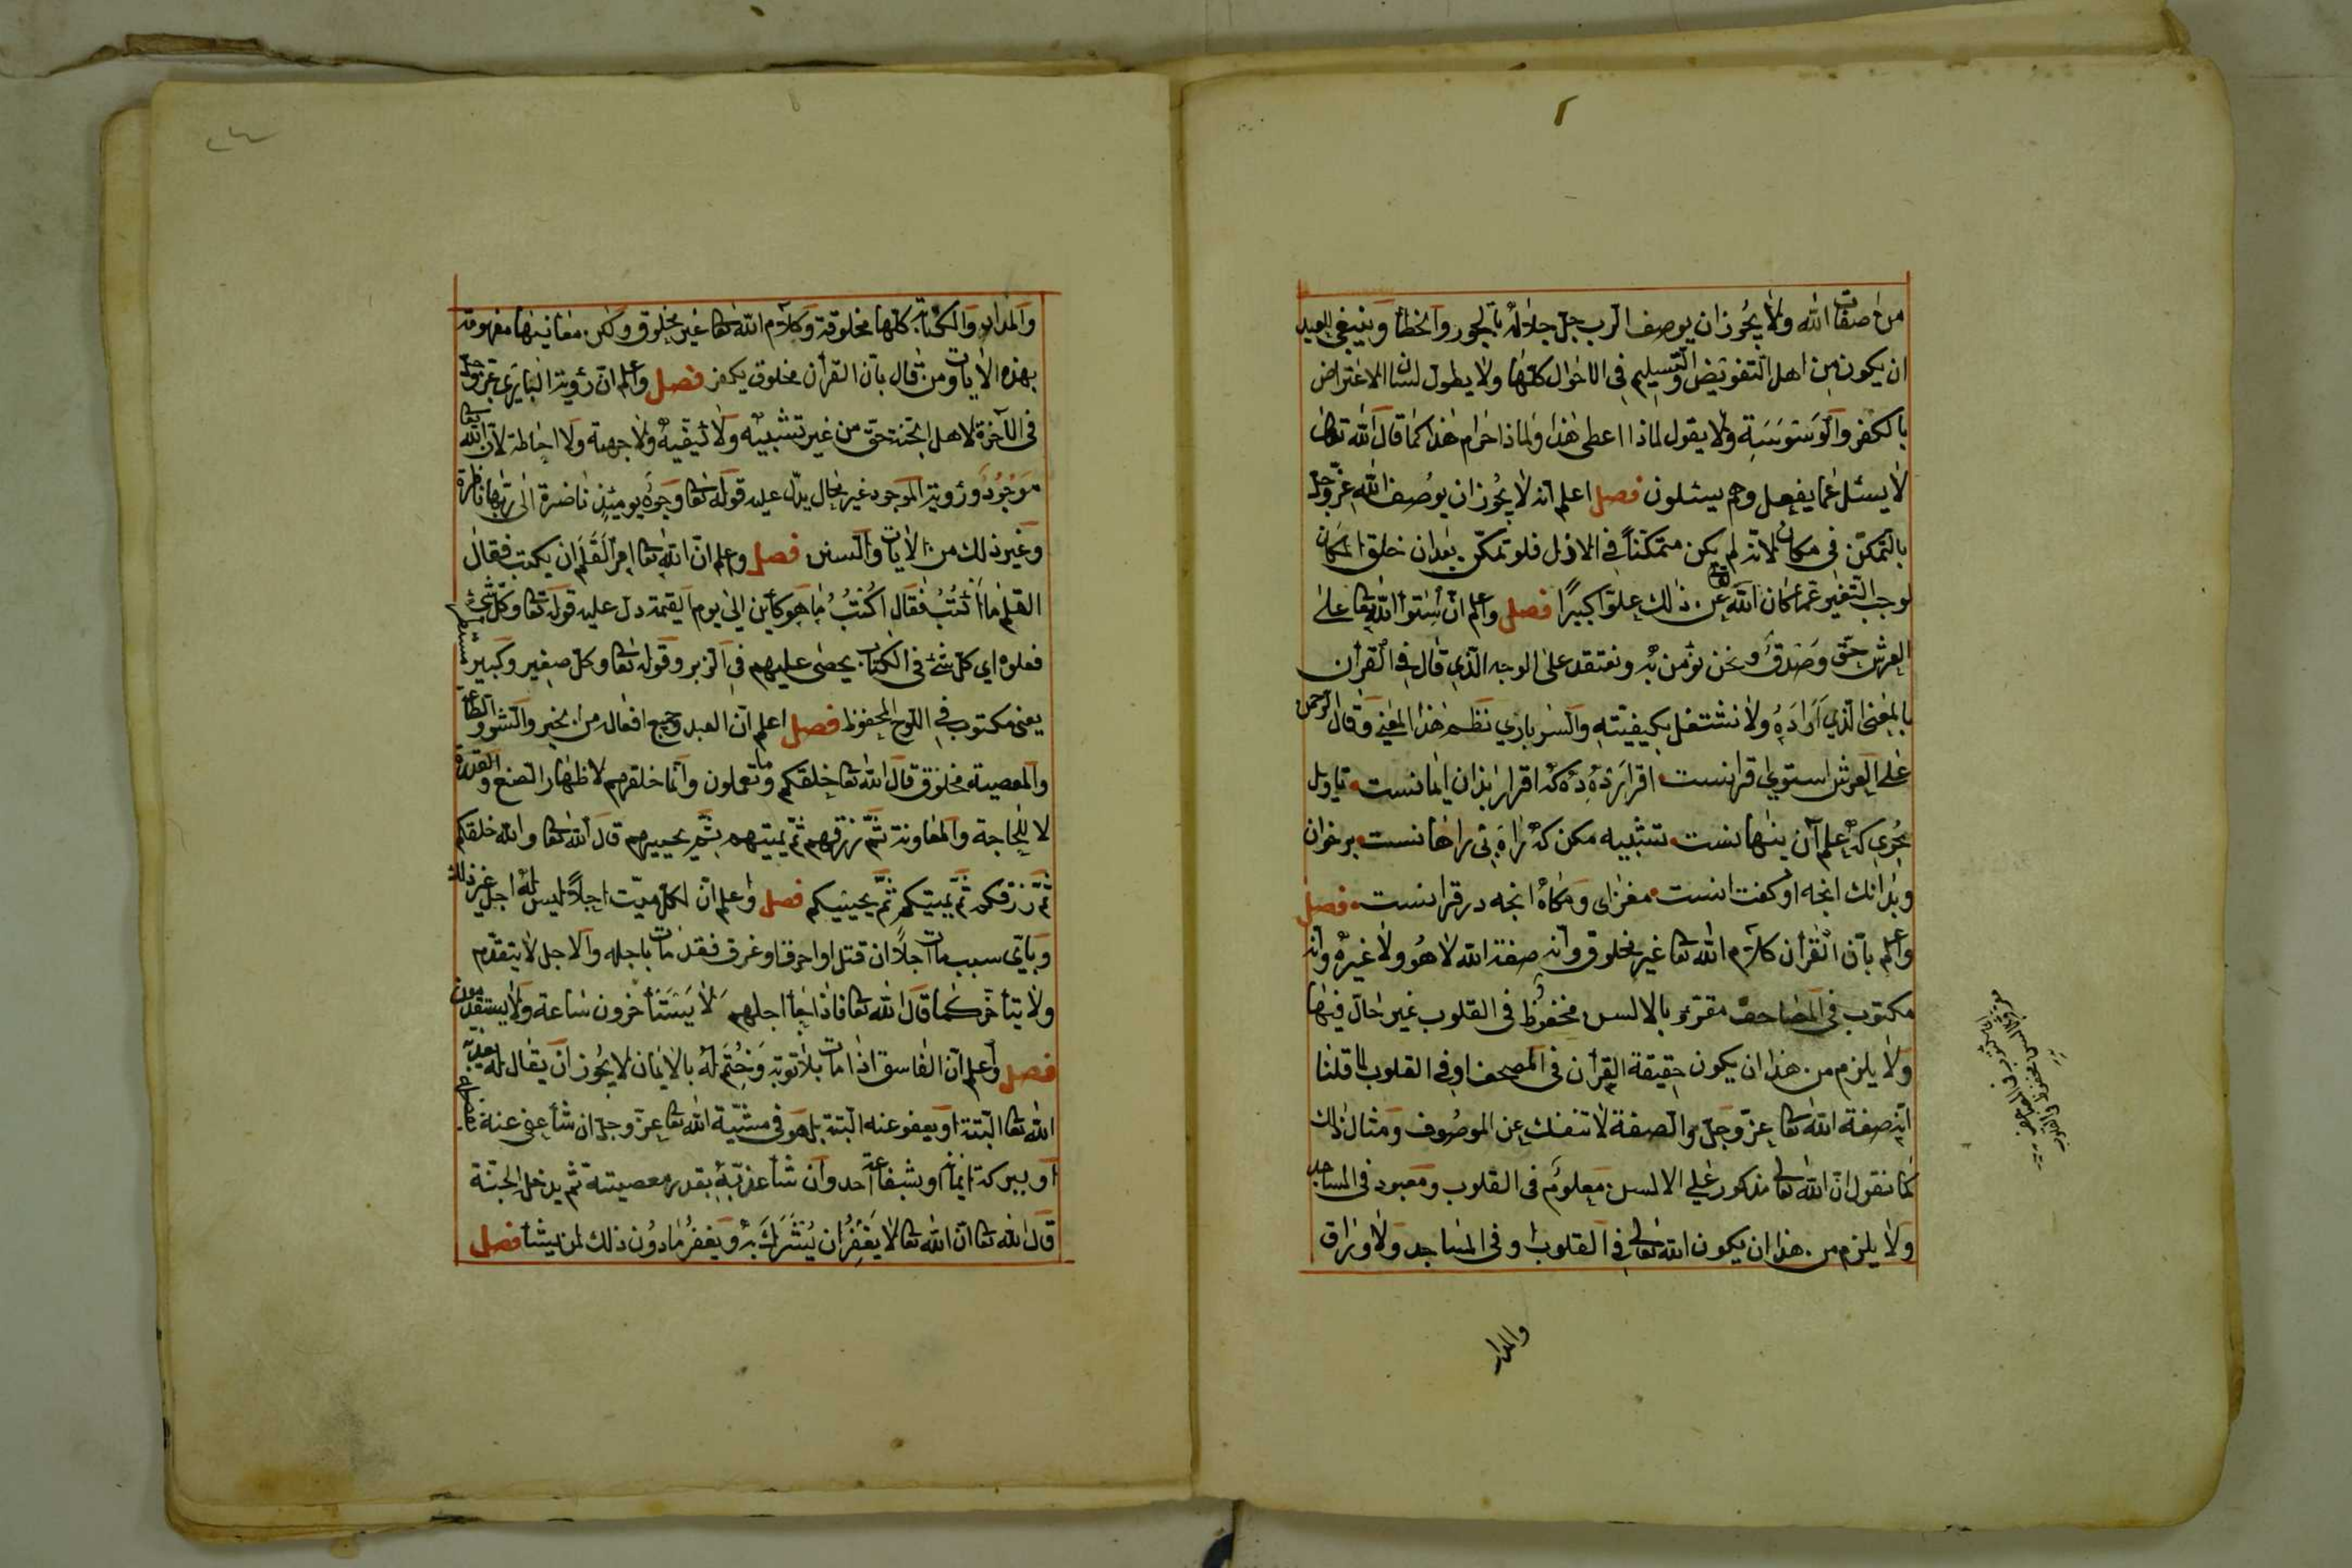 من صفات الله ولا يجوز ان يوصف الرب جل جلاله بالجور والخطأ وينبغى للعبد
ان يكون من اهل التفويض والتسليم فى الاحوال كلها ولا يطول لسان الاعتراض
بالكفر والوسوسة ولا يقول لماذا اعطى هذا ولماذا احرام هذا كما قال الله تعالى
لا يسئل عما يفعل وهم يسئلون فصل اعلم انه لا يجوز ان يوصف الله عز وجل
بالتمكن فى مكان لانه لم يكن متمكنا فى الازل فلو تمكن بعد ان خلق المكان
لوجب التغير عما كان الله عن ذلك علوا كبيرا فصل واعلم ان استوا الله تعا على
العرش حق وصدق ونحن نؤمن به ونعتقد على الوجه الذي قال فى القرأن
بالمعنى الذي اراده ولا نشتغل بكيفيته نظم هذا المعنى وقال الرحمن
على العرش استوى قرانست اقرار بدان ايمانست تاويل
علم آن پنهانست تشبيه مكن
وبدانك انچه او كفت انست انچه در قرانست فصل
واعلم بان القرأن كلام الله تعا غير مخلوق وانه صفة الله لا هو ولا غيره وانه
مكتوب فى المصاحف مقرؤ بالالسن محفوظ فى القلوب غير حال فيها
ولا يلزم من هذا ان يكون حقيقة القرأن فى المصحف او فى القلوب لما قلنا
انه صفة الله تعا عز وجل والصفة لا تنفك عن الموصوف ومثال ذلك
كما نقول ان الله تعالى مذكور على الالسن معلوم فى القلوب ومعبود فى المساجد
ولا يلزم من هذا ان يكون الله تعالى فى القلوب او فى المساجد ولاوراق
والمداد
والمداد والكتابة كلها مخلوقة وكلام الله تعا غير مخلوق ولكن معانيها مفهومة
بهذه الايات ومن قال بان القرأن مخلوق يكفر فصل واعلم ان رؤية البارى عز وجل
فى الآخرة لاهل الجنة حق من غير تشبيه ولا كيفية ولا جهة ولا احاطة لان الله تعا
موجود ورؤية الموجود غير محال يدل عليه قوله تعا وجوه يومئذ ناضرة الى ربها ناظرة
وغير ذلك من الايات والسنن فصل وعلم ان الله تعا امر القلم ان يكتب فقال
القلم ما اكتب فقال اكتب ما هو كأين الى يوم القيمة دل عليه قوله تعا وكل شئ
فعلوه اي كل شئ فى الكتاب يحصى عليهم فى الزبر وقوله تعا وكل صغير وكبير مستطر
يعنى مكتوب فى اللوح المحفوظ فصل اعلم ان العبد وجميع افعاله من الخير والشر والطاعة
والمعصية مخلوق قال الله تعا خلقكم وما تعملون وانما خلقهم لاظهار الصنع والقدرة
لا للحاجة والمعاونة ثم رزقهم ثم يميتهم ثم يحييهم قال الله تعا والله خلقكم
ثم رزقكم ثم يميتكم ثم يحييكم فصل واعلم ان لكل ميت اجلا ليس له اجل غير ذلك
وباى سبب مات اجلا ان قتل او احرق او غرق فقد مات باجله والاجل لا يتقدم
ولا يتأخر كما قال الله تعا فاذا جأ اجلهم لا يستأخرون ساعة ولا يستقدمون
فصل واعلم ان الفاسق اذا مات بلا توبة وختم له بالايمان لا يجوز ان يقال له يعذبه
الله تعا البتة او يعفو عنه البتة بل هو فى مشية الله تعا عز وجل ان شأ عفى عنه
او ببركة ايمانه او بشفاعة احد وان شأ عذبه بقدر معصيته ثم يدخل الجنة
قال الله تعا ان الله تعا لا يغفر ان يشرك به ويغفر ما دون ذلك لمن يشأ فصل